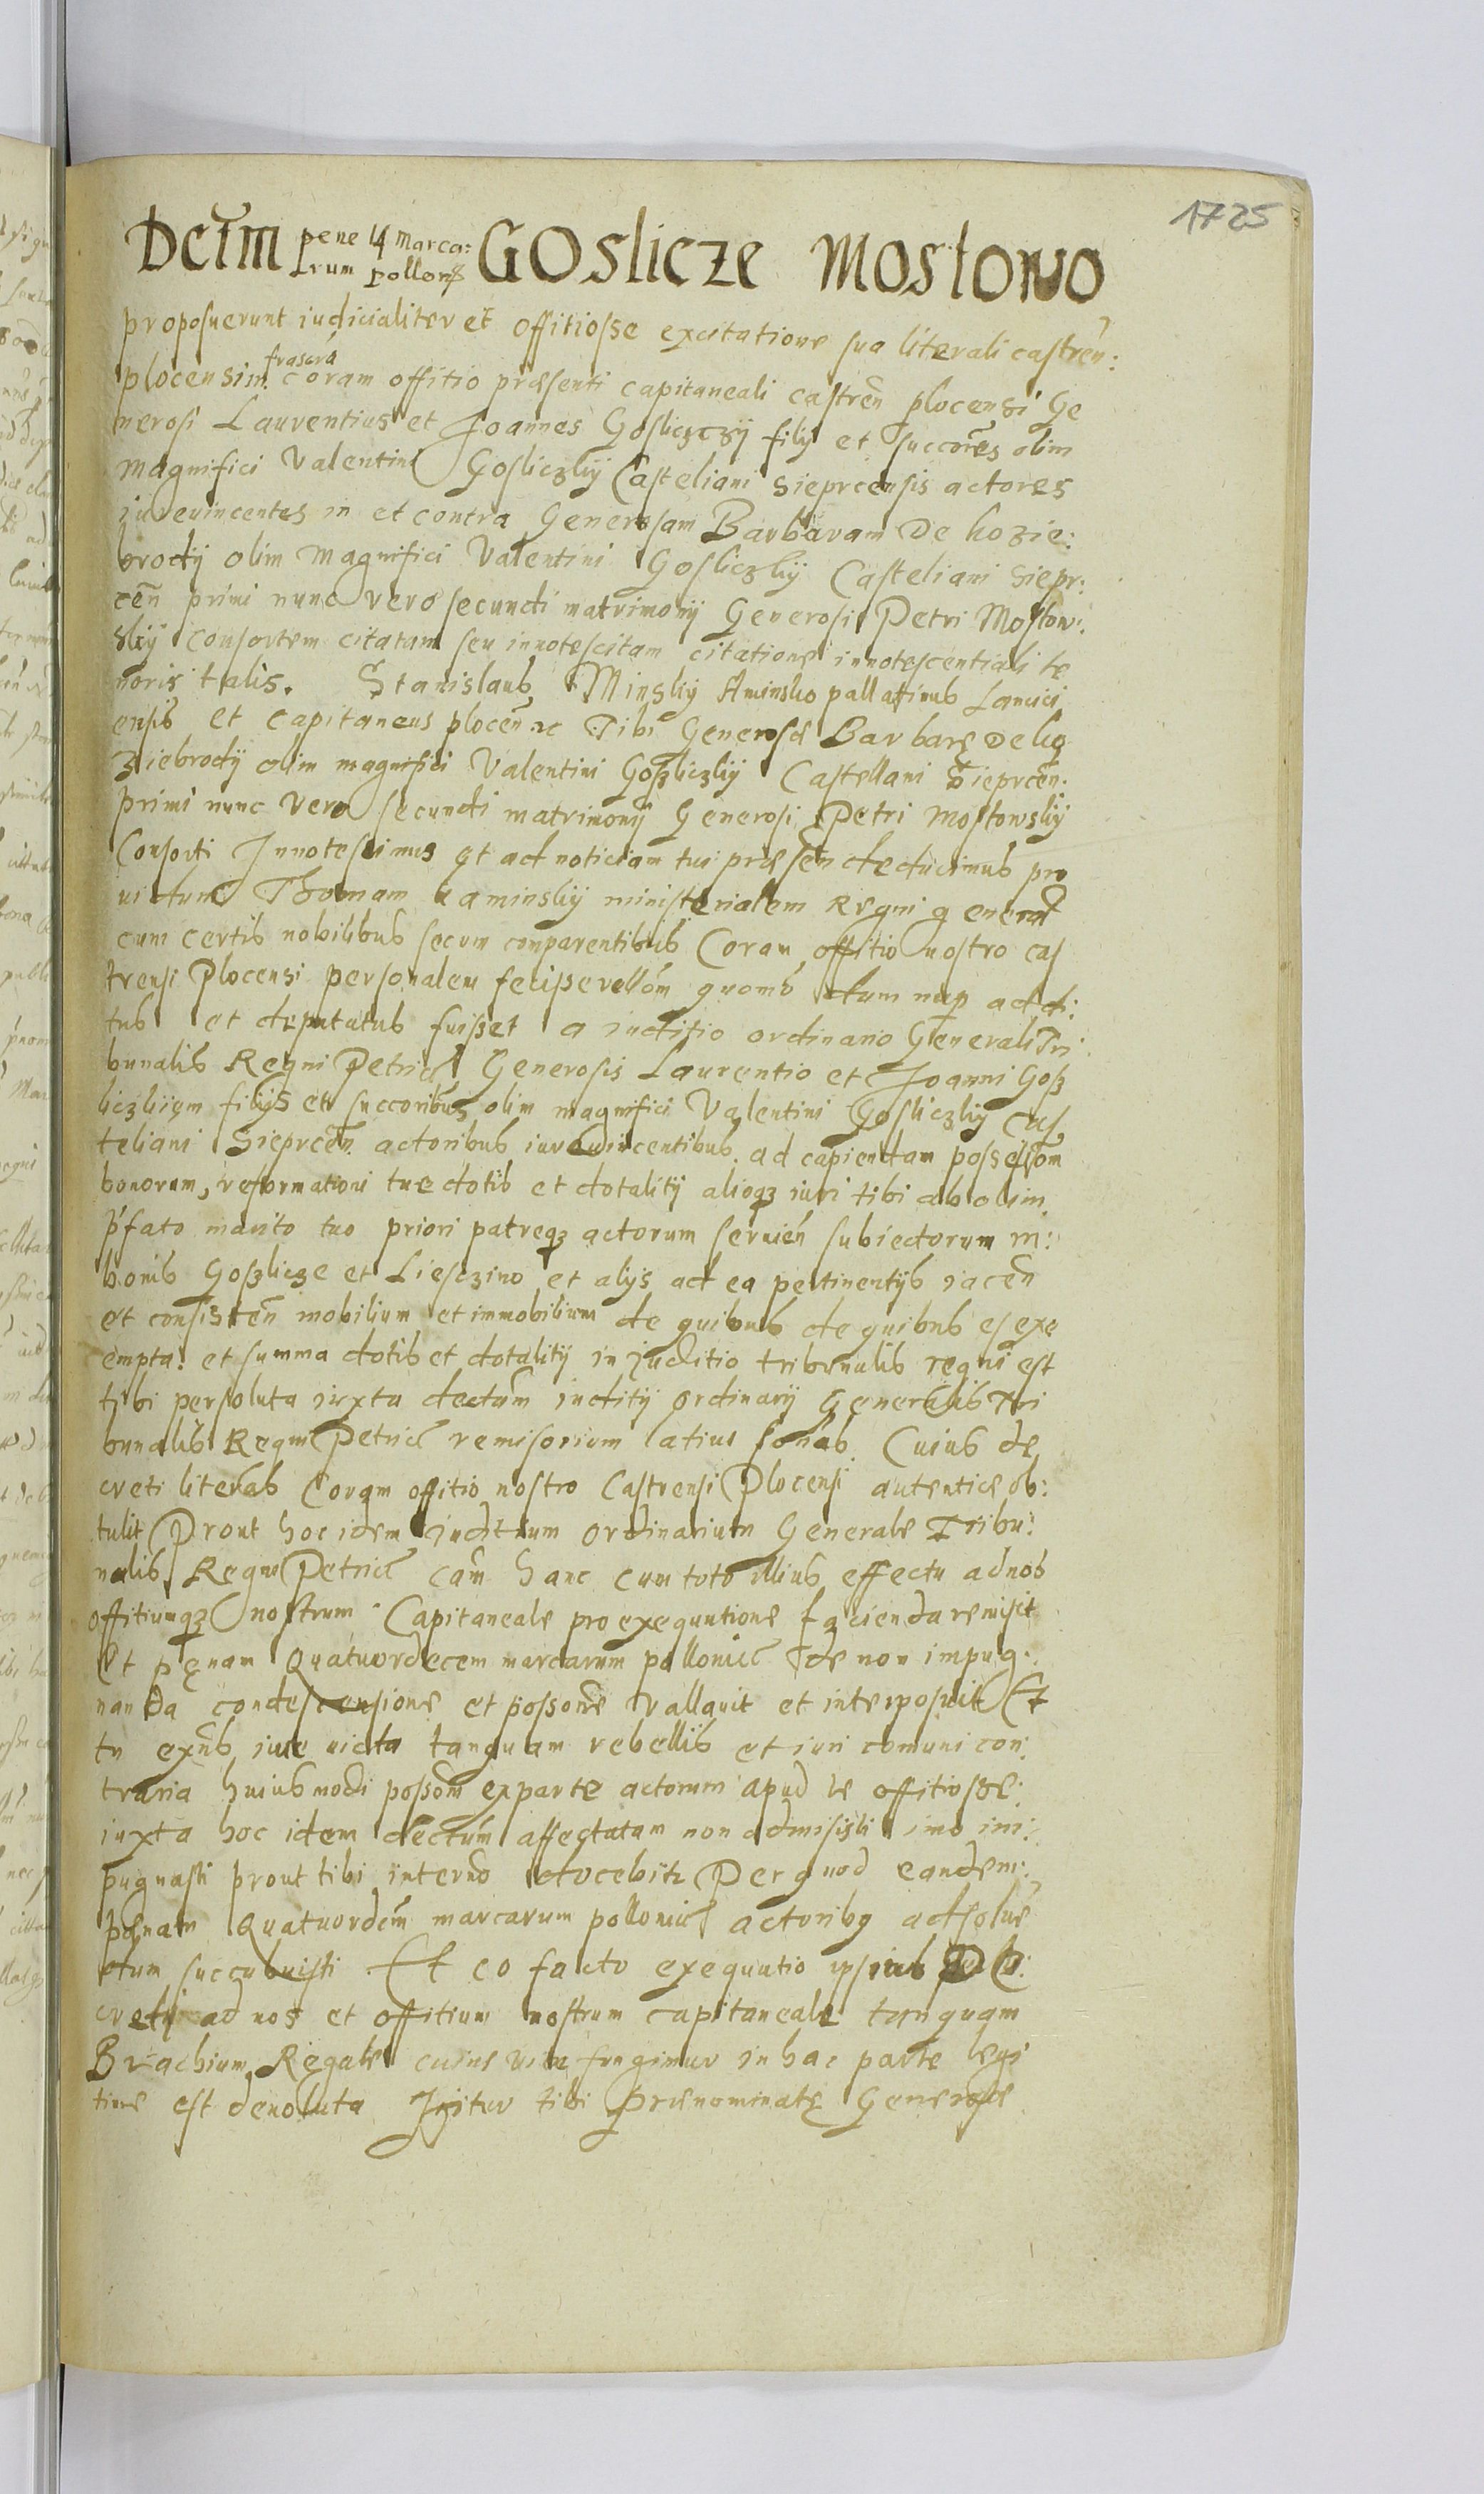 1725
Dctm pene 14 marca: rum pollon GOslicze Mostowo
proposuerunt iudicialiter et offitiosse excitatione sua literali castren:
plocensi infrascra coram offitio præsenti capitaneali castren plocensi Ge
nerosi Laurentius et Joannes Gosliczczÿ filÿ et succores olim
magnifici Valentini Gosliczkÿ Casteliani Sieprcensis actores
iureuincentes in et contra Generosam Barbaram De kozie:
brodÿ olim Magnifici Valentini Gosliczkÿ Casteliani Siepr:
cen primi nunc vero secundi matrimonÿ Generosi Petri Mostow:
skÿ consortem citatam seu innotescitam citatione innotescentiali te
noris talis. Stanislaus Minskÿ Aminsko pallatinus Lancici
ensis et capitaneus plocen ac Tibi Generosæ Barbare De ko
ziebrodÿ olim magnifici Valentini Goszliczkÿ Castellani Sieprcen:
primi nunc vero secundi matrimonÿ Generosi Petri Mostowskÿ
Consorti Innotescimus et ad noticiam tui præsen deducimus pro
uidum Thomam kaminskÿ ministerialem Regni generat
cum certis nobilibus secum comparentibus Coram offitio nostro cas
trensi Plocensi personalem fecisse rellom quomo dum nup addi:
tus et deputatus fuisset a iuditio ordinario Generali Tri
bunalis Regni Petric Generosis Laurentio et Joanni Gosz
liczkiiem filÿs et succoribus olim magnifici Valentini Gosliczkÿ Cas
teliani Sieprcen actoribus iureuincentibus ad capiendam possessiom
bonorum, reformationi tue dotis et dotalitÿ alioqz iuri tibi ab olim
pfato marito tuo priori patreqz actorum seruien subiectorum in:
bonis Goszlicze et Liesczino et alÿs ad ea pertinentÿs iacen
et consisten mobilium et immobilium de quibus de quibus es exe
empta: et summa dotis et dotalitÿ in juditio tribunalis regni est
tibi persoluta iuxta dectum iuditÿ ordinarÿ Generalis Tri
bunalis Regni Petric remisorium latius sonas Cuius de
creti literas Coram offitio nostro Castrensi Plocensi autentice ob:
tulit Prout hoc idem iuditium ordinarium Generale Tribu:
nalis Regni Petric cam hanc cum toto illius effectu ad nos
offitiumqz nostrum Capitaneale pro exequutione facienda remisit
Et pęnam Quatuordecem marcarum pollonic de non impug:
nanda condescensione et possone vallauit et interposuit Et
tu exnus iure victa tanquam rebellis et iuri comuni con:
traria huiusmodi possom ex parte actorum apud te offitiosse:
iuxta hoc idem dectum affectatam non admisisti imo im:
pugnasti prout tibi interno docebitr Per quod eandem:
pęnam Quatuordem marcarum pollonic actoribq adsoluen
dum succubuisti Et eo facto exequutio ipsius De:
creti ad nos et offitium nostrum capitaneale tanquam
Brachium Regale cuius vice fungimur in hac parte legi
time est deuoluta Igitur tibi Prænominatę Generosæ